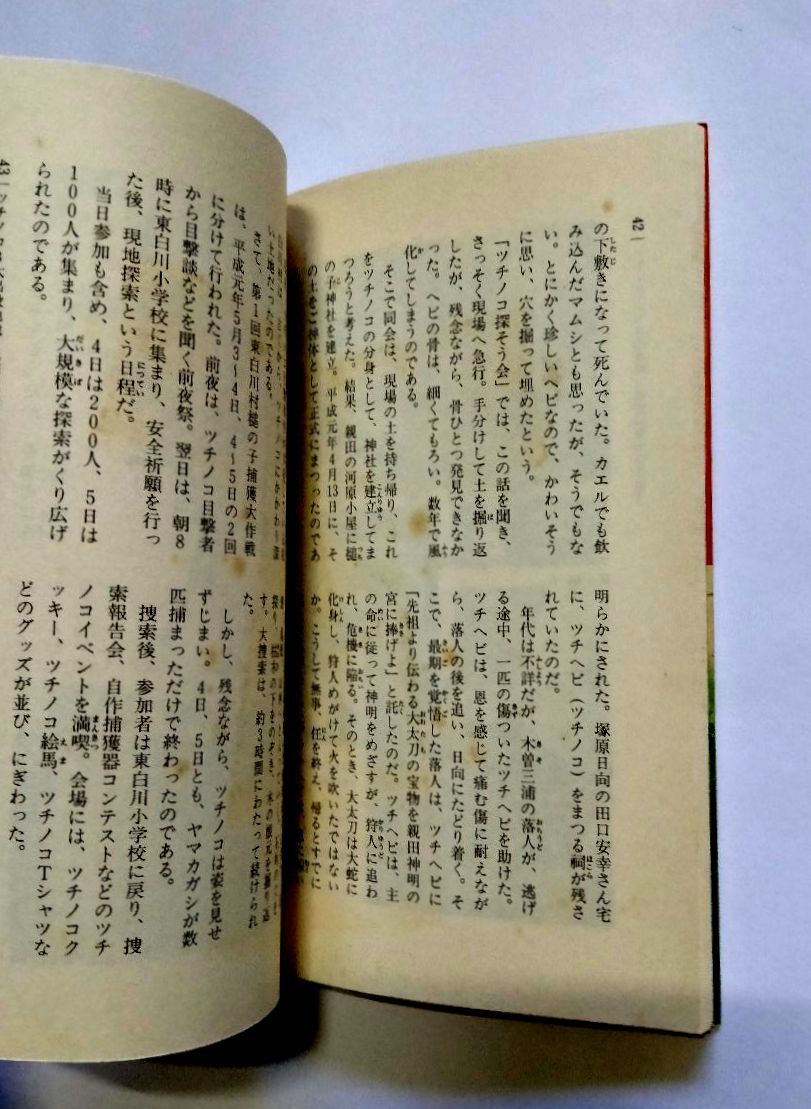 42
の下敷きになって死んでいた。カエルでも飲
み込んだマムシとも思ったが、そうでもな
い。とにかく珍しいヘビなので、かわいそう
に思い、穴を掘って埋めたという。
「ツチノコ探そう会」では、この話を聞き、
さっそく現場へ急行。手分けして土を掘り返
したが、残念ながら、骨ひとつ発見できなか
った。ヘビの骨は、細くてもろい。数年で風
化してしまうのである。
そこで同会は、現場の土を持ち帰り、これ
をツチノコの分身として、神社を建立してま
つろうと考えた。結果、親田の河原小屋に槌
の子神社を建立。平成元年4月13日に、そ
の土をご神体として正式にまつったのであ
明らかにされた。塚原日向の田口安幸さん宅
に、ツチヘビ(ツチノコ)をまつる祠が残さ
れていたのだ。
年代は不詳だが、木曽三浦の落人が、逃げ
る途中、一匹の傷ついたツチヘビを助けた。
ツチヘビは、恩を感じて痛む傷に耐えなが
ら、落人の後を追い、日向にたどり着く。そ
こで、最期を覚悟した落人は、ツチヘビに
「先祖より伝わる大太刀の宝物を親田神明の
宮に捧げよ」と託したのだ。ツチヘビは、主
の命に従って神明をめざすが、狩人に追わ
れ、危機に陥る。そのとき、大太刀は大蛇に
化身し、狩人めがけて火を吹いたではない
か。こうして無事、任を終え、帰るとすでに
い土地だったのである。
さて、第1回東白川村槌の子捕獲大作戦
は、平成元年5月3〜4日、4〜5日の2回
に分けて行われた。前夜は、ツチノコ目撃者
から目撃談などを聞く前夜祭。翌日は、朝8
時に東白川小学校に集まり、安全祈願を行っ
た後、現地探索という日程だ。
当日参加も含め、4日は200人、5日は
100人が集まり、大規模な探索がくり広げ
られたのである。
す。大捜索は、約3時間にわたって続けられ
た。
しかし、残念ながら、ツチノコは姿を見せ
ずじまい。4日、5日とも、ヤマカガシが数
匹捕まっただけで終わったのである。
捜索後、参加者は東白川小学校に戻り、捜
索報告会、自作捕獲器コンテストなどのツチ
ノコイベントを満喫。会場には、ツチノコク
ッキー、ツチノコ絵馬、ツチノコTシャツな
どのグッズが並び、にぎわった。
43